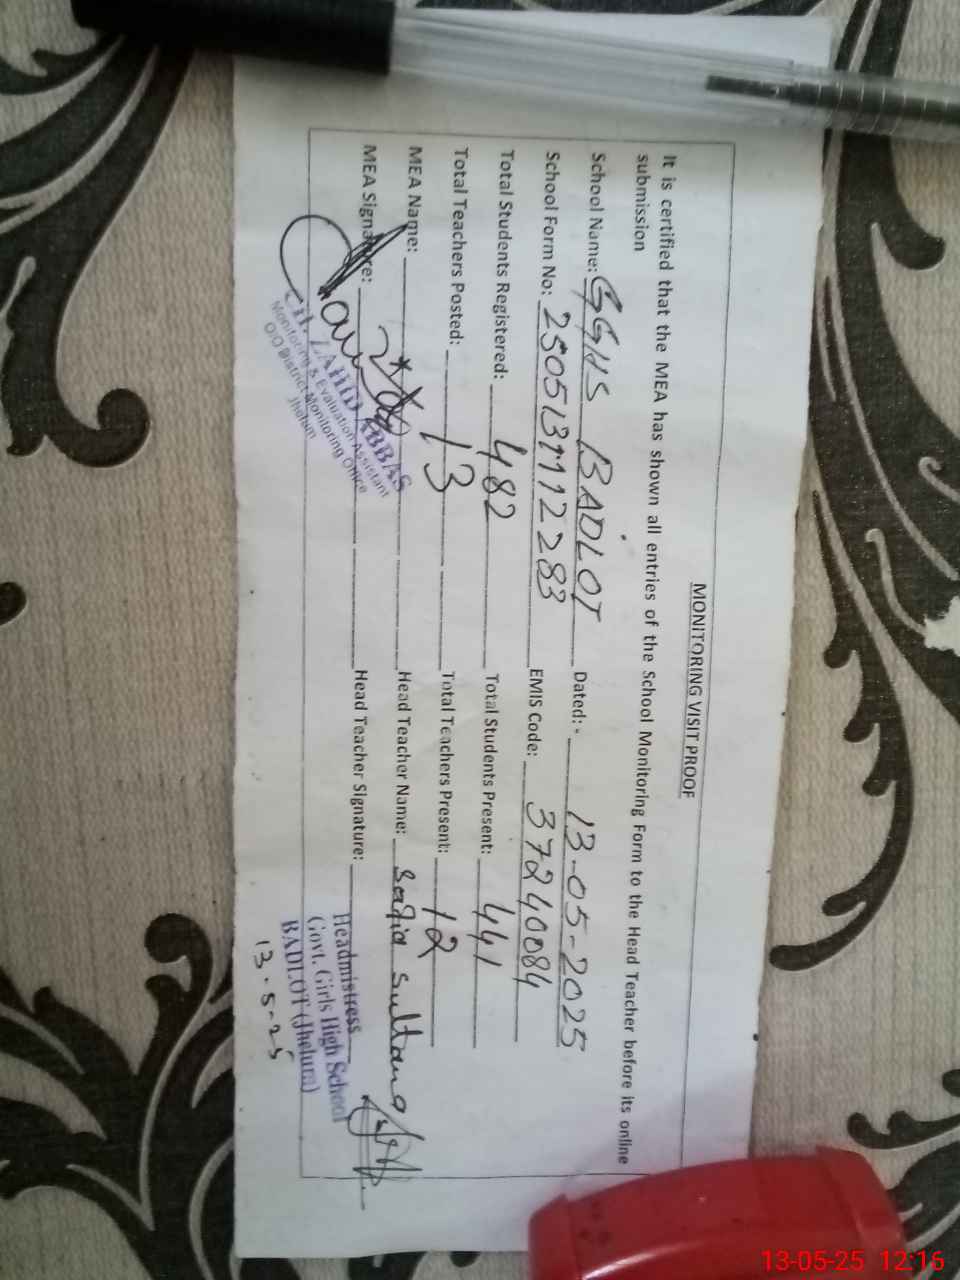 MONITORING VISIT PROOF
It is certified that the MEA has shown all entries of the School Monitoring Form to the Head Teacher before its online
submission
School Name: GGHS BADLOT Dated:- 13-05-2025
School Form No: EMIS Code: 37240084
Total Students Registered: 482 Total Students Present: 441
Total Teachers Posted: 13 Total Teachers Present: 12
MEA Name: Head Teacher Name: Sadia Sultana
MEA Signature: Head Teacher Signature:
ZAHID ABBAS
Monitoring & Evaluation Assistant
O/O District Monitoring Office
Jhelum
Headmistress
Govt. Girls High School
BADLOT (Jhelum)
13.5-25
13-05-25 12:16